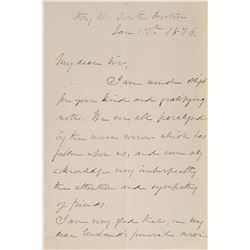 Jan 17th 1876.
My dear Sir,
I am much obliged
for your kind and gratifying
note. We are all paralyzed
by the sorrow which has
fallen upon us, and can only
acknowledge very imperfectly
the attention and sympathy
of friends.
I am very glad that, in my
dear husband's funeral